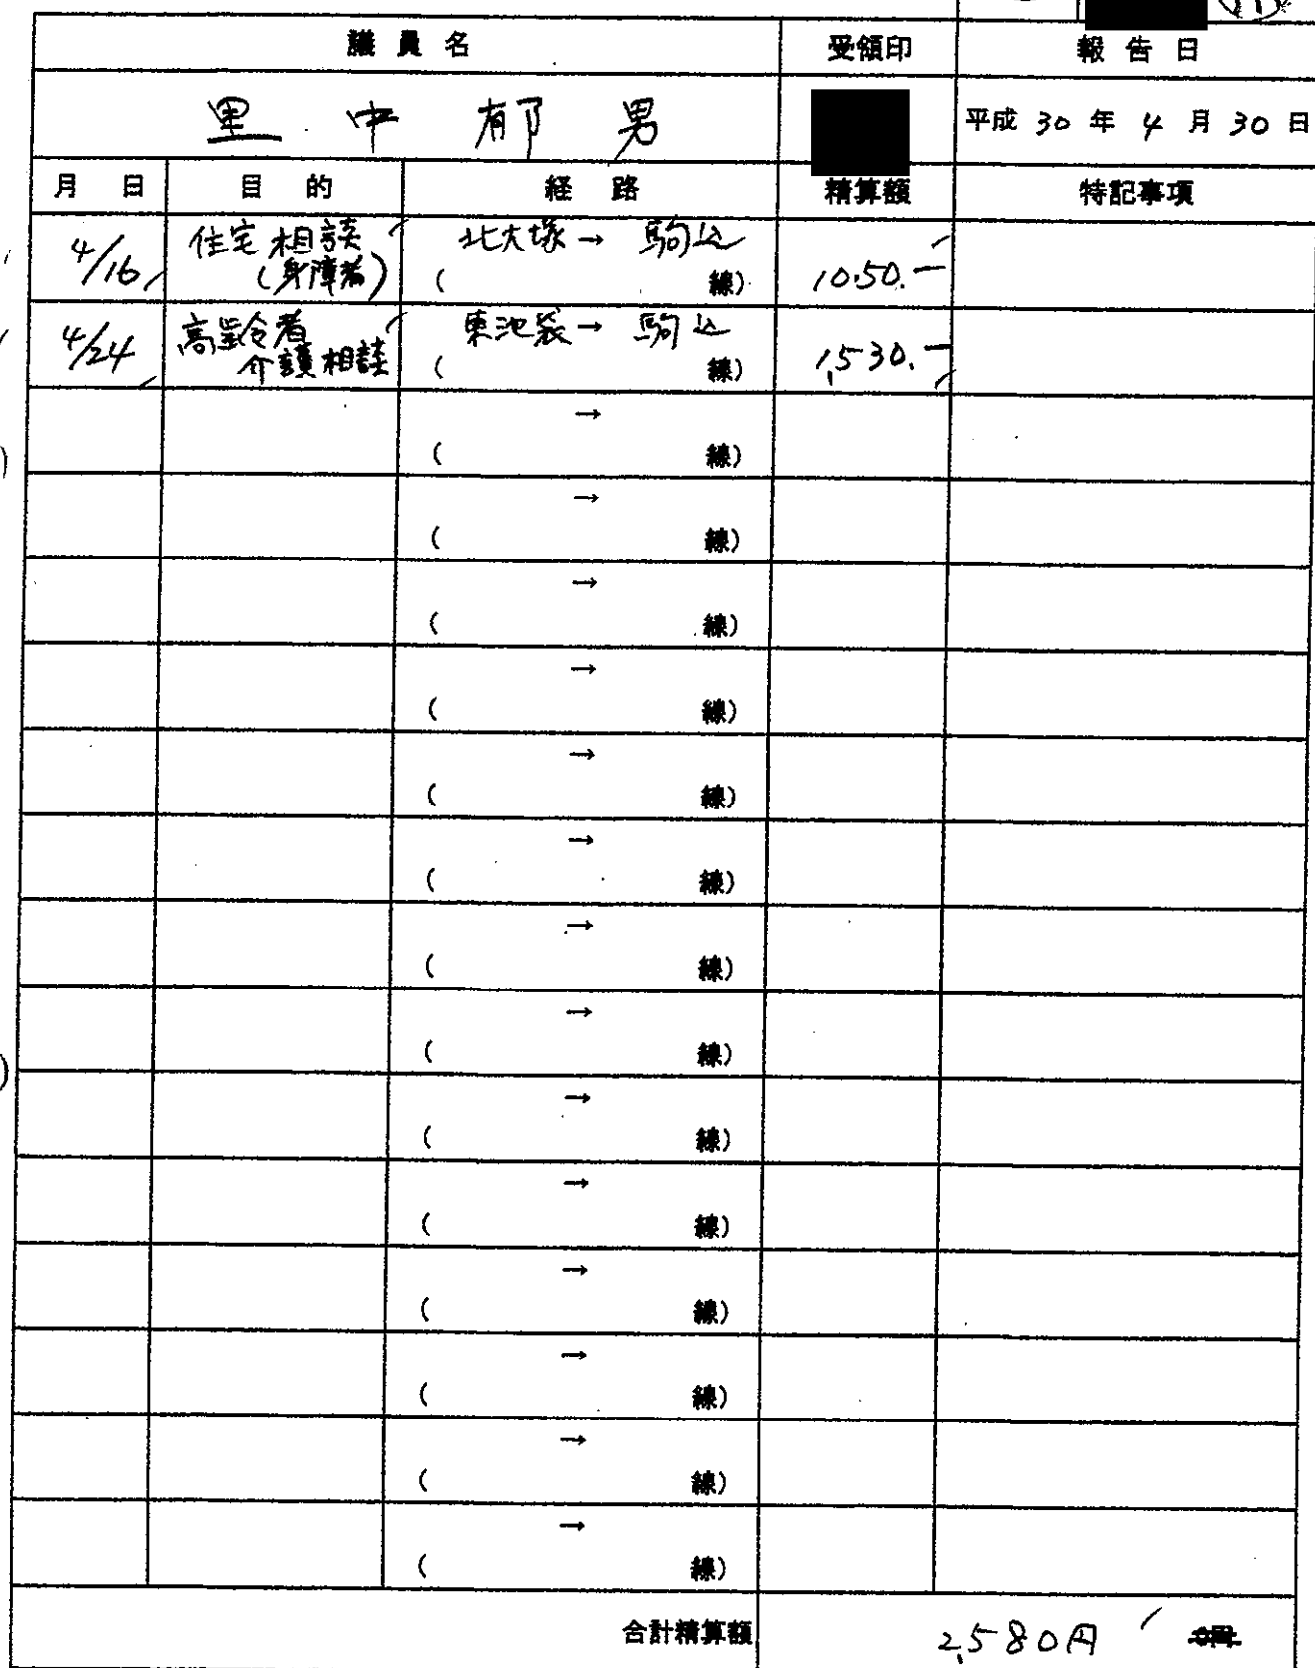 議員名 受領印 報告日
里中郁男 平成30年4月30日
月日 目的 経路 精算額 特記事項
4/16 住宅相談 北大塚→駒込
(身障者) ( 線) 10.50.-
4/24 高齢者 東池袋→駒込
介護相談 ( 線) 1,530.-
→
( 線)
→
( 線)
→
( 線)
→
( 線)
→
( 線)
→
( 線)
→
( 線)
→
( 線)
→
( 線)
→
( 線)
→
( 線)
→
( 線)
→
( 線)
→
( 線)
合計精算額 2,580円